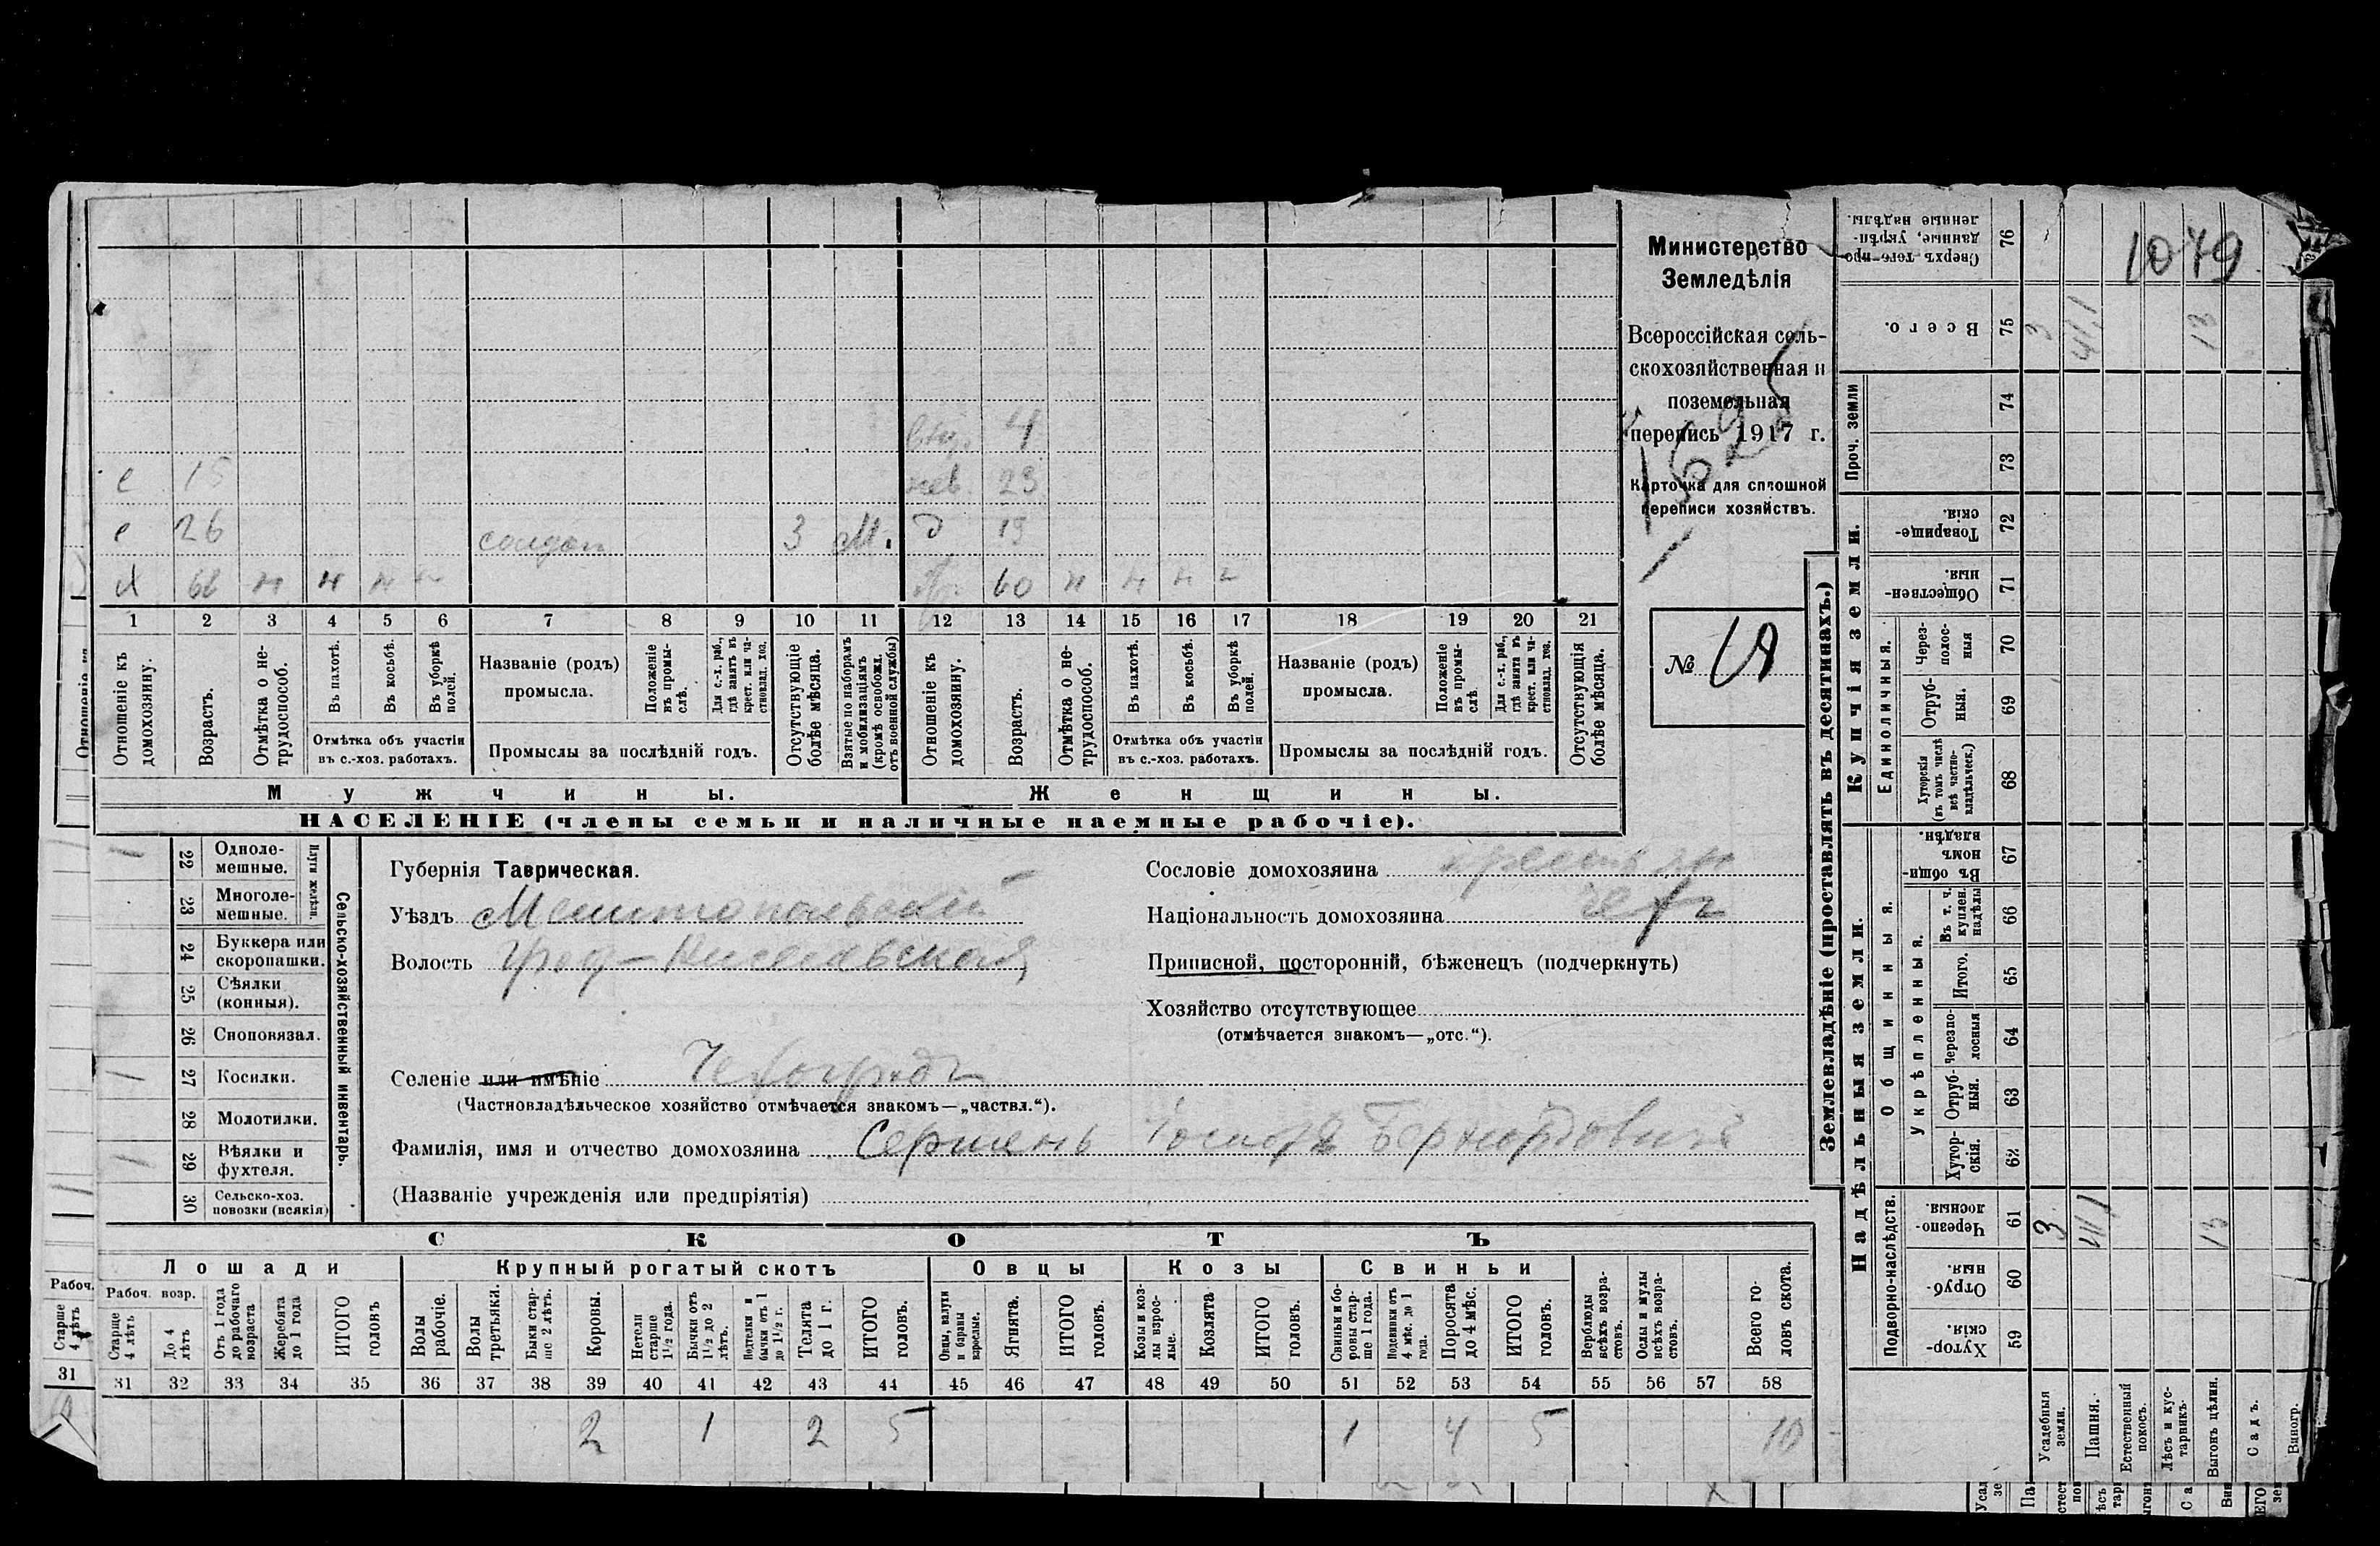 Министерство
Земледѣлія
Всероссійская сель-
скохозяйственная и
поземельная
перепись 1917 г.
Карточка для сплошной
переписи хозяйствъ.
№ 19
1079
4
с 15 23
с 26 солдат 3 м. д 19
х 68 н н н н 60 н н н н
1 2 3 4 5 6 7 8 9 10 11 12 13 14 15 16 17 18 19 20 21
Отношеніе къ домохозяину.
Возрастъ.
Отмѣтка о не-трудоспособ.
Въ пахотѣ.
Въ косьбѣ.
Въ уборкѣ полей.
Отмѣтка объ участіи въ с.-хоз. работахъ.
Названіе (родъ) промысла.
Положеніе въ промы-слѣ.
Для с.-х. раб., гдѣ занятъ въ крест. или ча-стновлад. хоз.
Промыслы за послѣдній годъ.
Отсутствующіе болѣе мѣсяца.
Взятые по наборамъ и мобилизаціямъ (кромѣ освобожд. отъ военной службы)
Отношеніе къ домохозяину.
Возрастъ.
Отмѣтка о не-трудоспособ.
Въ пахотѣ.
Въ косьбѣ.
Въ уборкѣ полей.
Отмѣтка объ участіи въ с.-хоз. работахъ.
Названіе (родъ) промысла.
Положеніе въ промы-слѣ.
Для с.-х. раб., гдѣ занята въ крест. или ча-стновлад. хоз.
Промыслы за послѣдній годъ.
Отсутствующія болѣе мѣсяца.
Мужчины. Женщины.
НАСЕЛЕНІЕ (члены семьи и наличные наемные рабочіе).
Сельско-хозяйственный инвентарь.
Плуги желѣзн.
1 22 Одноле-мешные.
23 Многоле-мешные.
24 Буккера или скоропашки.
25 Сѣялки (конныя).
26 Сноповязал.
1 27 Косилки.
28 Молотилки.
1 29 Вѣялки и фухтеля.
30 Сельско-хоз. повозки (всякія)
Губернія Таврическая.
Уѣздъ Мелитопольскій
Волость
Селеніе или имѣніе Чехоградъ
(Частновладѣльческое хозяйство отмѣчается знакомъ—„частвл.“).
Фамилія, имя и отчество домохозяина
(Названіе учрежденія или предпріятія)
Сословіе домохозяина крестьян
Національность домохозяина чехъ
Приписной, посторонній, бѣженецъ (подчеркнуть)
Хозяйство отсутствующее
(отмѣчается знакомъ—„отс.“).
СКОТЪ
Лошади Крупный рогатый скотъ Овцы Козы Свиньи
Рабоч. возр.
Старше 4 лѣтъ
До 4 лѣтъ
Отъ 1 года до рабочаго возраста
Жеребята до 1 года
ИТОГО головъ
Волы рабочіе.
Волы третьяки.
Быки стар-ше 2 лѣтъ.
Коровы.
Нетели старше 1½ года.
Бычки отъ 1½ до 2 лѣтъ.
Подтелки и бычки отъ 1 до 1½ г.
Телята до 1 г.
ИТОГО головъ.
Овцы, валухи и бараны взрослые.
Ягнята.
ИТОГО головъ.
Козы и коз-лы взрос-лые.
Козлята
ИТОГО головъ.
Свиньи и бо-ровы стар-ше 1 года.
Подсвинки отъ 4 мѣс. до 1 года.
Поросята до 4 мѣс.
ИТОГО головъ.
Верблюды всѣхъ возра-стовъ.
Ослы и мулы всѣхъ возра-стовъ.
Всего го-ловъ скота.
31 32 33 34 35 36 37 38 39 40 41 42 43 44 45 46 47 48 49 50 51 52 53 54 55 56 57 58
2 1 2 5 1 4 5 10
Землевладѣніе (проставлять въ десятинахъ.)
Надѣльныя земли. Купчія земли. Проч. земли
Подворно-наслѣдств.
Общинныя.
Укрѣпленныя.
Единоличныя.
Хутор-скія. 59
Отруб-ныя. 60
Черезпо-лосныя. 61
Хутор-скія. 62
Отруб-ныя. 63
Черезпо-лосныя 64
Итого. 65
Въ т. ч. куплен. надѣлы 66
Въ общи-номъ владѣн. 67
Хуторскія (въ томъ числѣ всѣ частно-владѣльческ.) 68
Отруб-ныя. 69
Через-полос-ныя 70
Обществен-ныя. 71
Товарище-скія. 72
73
74
Всего. 75
Сверхъ того-про-данные, укрѣп-ленные надѣлы. 76
Усадебныя земли. 3 3
Пашня.
Естественный покосъ.
Лѣсъ и кус-тарникъ.
Выгонъ цѣлин. 13 13
Садъ.
Виногр.